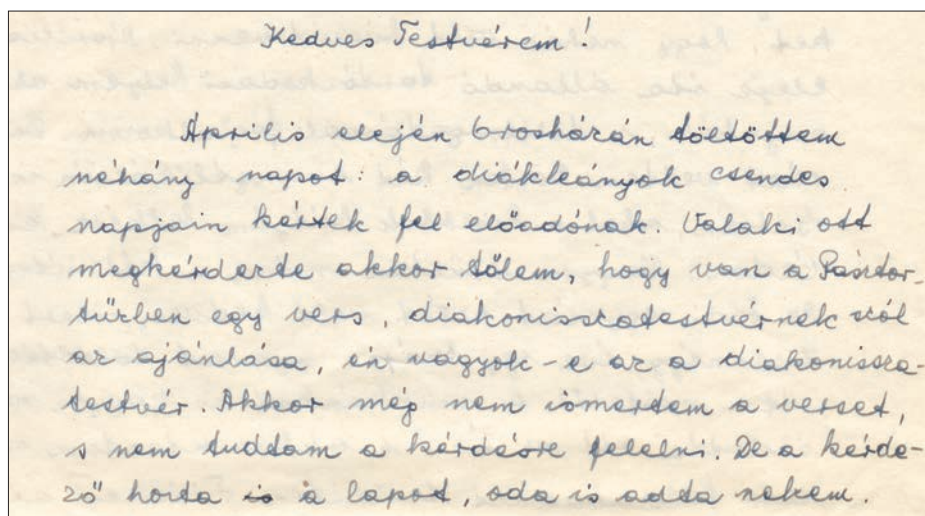 Kedves Testvérem!
Április elején Crosházán töltöttem
néhány napot: a diákleányok csendes
napjain kértek fel előadónak. Valaki ott
megkérdezte akkor tőlem, hogy van a Pásztor-
tűzben egy vers, diakonisszatestvérnek szól
az ajánlása, én vagyok-e az a diakonissza-
testvér. Akkor még nem ismertem a verset,
s nem tudtam a kérdésre felelni. De a kérde-
ző hozta is a lapot, oda is adta nekem.